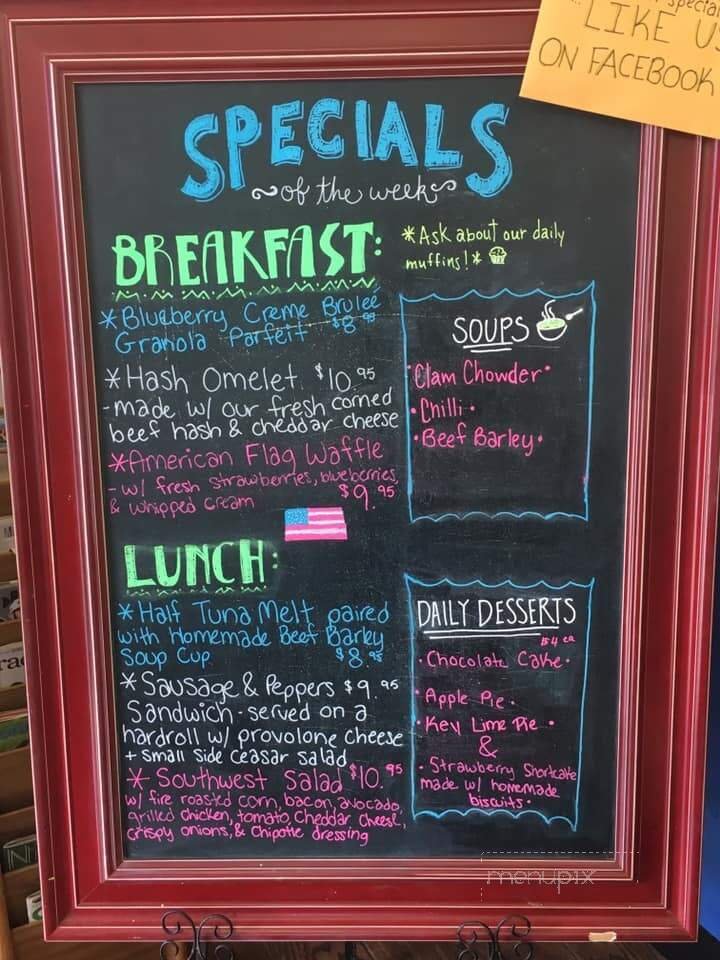 special
LIKE US
ON FACEBOOK
SPECIALS
of the week
BREAKFAST:
*Ask about our daily
muffins!*
*Blueberry Creme Brulee
Granola Parfeit $8.95
*Hash Omelet $10.95
-made w/ our fresh corned
beef hash & cheddar cheese
*American Flag Waffle
-w/ fresh strawberries, blueberries,
& whipped cream $9.95
SOUPS
•Clam Chowder•
•Chilli•
•Beef Barley•
LUNCH:
*Half Tuna Melt paired
with Homemade Beef Barley
Soup Cup $8.95
*Sausage & Peppers $9.95
Sandwich-served on a
hardroll w/ provolone cheese
+ small side ceasar salad
*Southwest Salad $10.95
w/ fire roasted corn, bacon, avocado,
grilled chicken, tomato, cheddar cheese,
crispy onions, & chipotle dressing
DAILY DESSERTS
$4 ea
•Chocolate Cake•
•Apple Pie•
•Key Lime Pie•
&
•Strawberry Shortcake
made w/ homemade
biscuits•
menupix